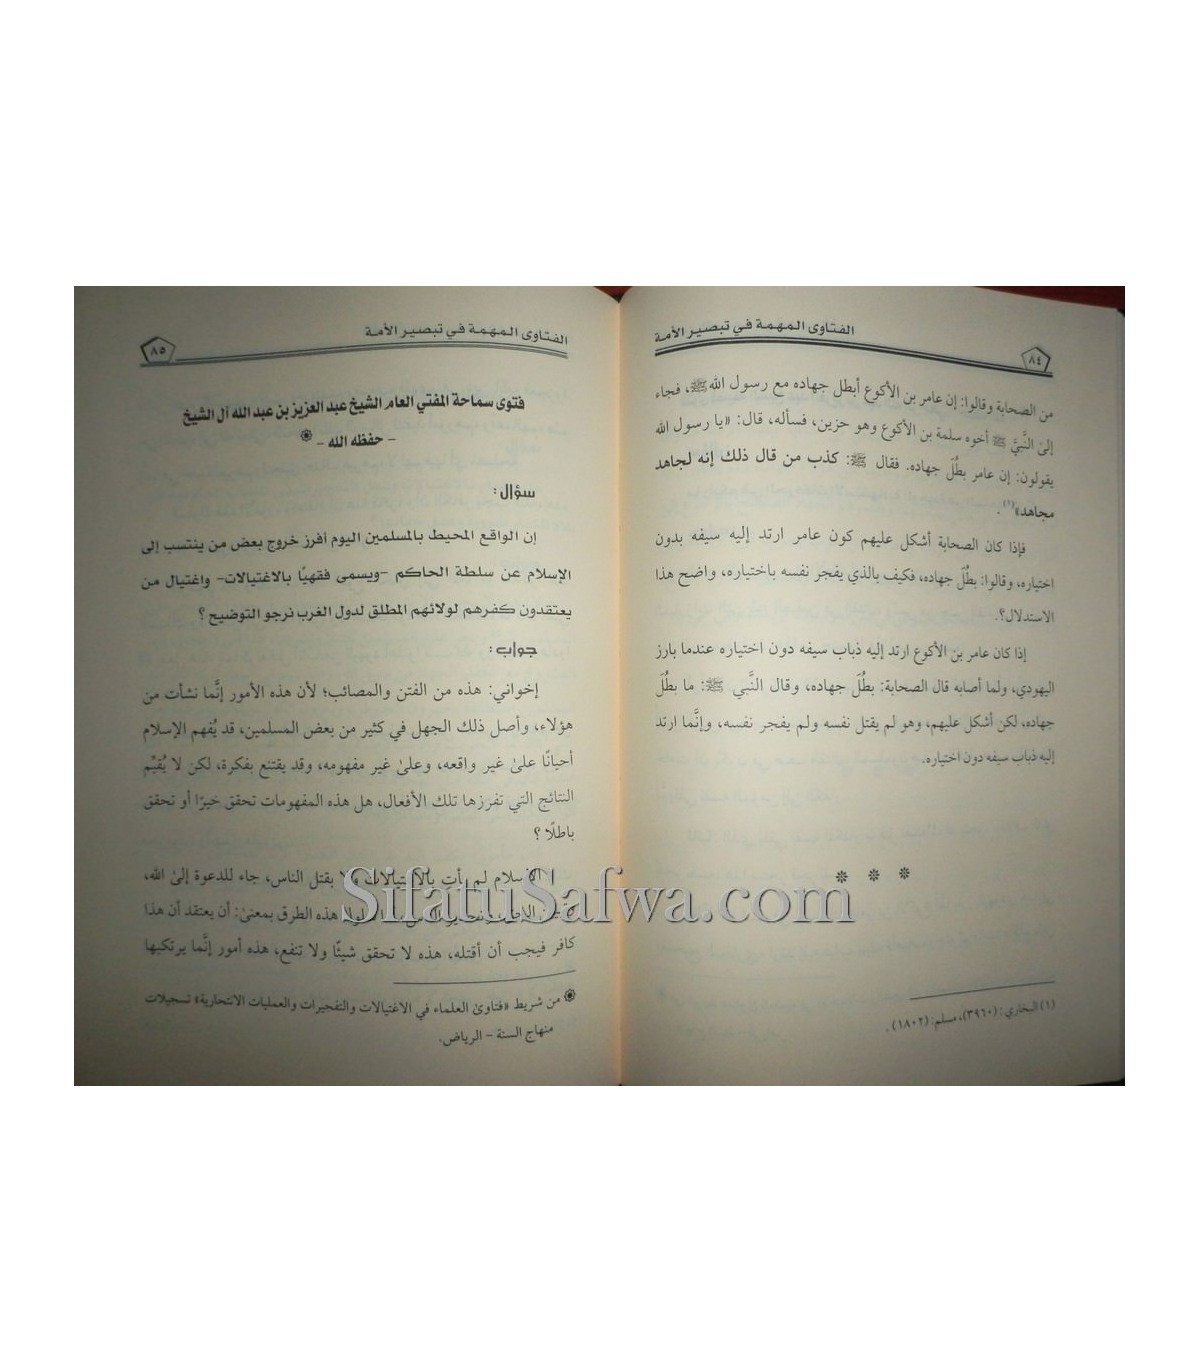 الفتاوى المهمة في تبصير الأمة
٨٤
من الصحابة وقالوا: إن عامر بن الأكوع أبطل جهاده مع رسول الله ﷺ، فجاء
إلىٰ النَّبيَّ ﷺ أخوه سلمة بن الأكوع وهو حزين، فسأله، قال: «يا رسول الله
يقولون: إن عامر بطُلَ جهاده. فقال ﷺ: كذب من قال ذلك إنه لجاهد
مجاهد»(١).
فإذا كان الصحابة أشكل عليهم كون عامر ارتد إليه سيفه بدون
اختياره، وقالوا: بطُلَ جهاده، فكيف بالذي يفجر نفسه باختياره، واضح هذا
الاستدلال؟.
إذا كان عامر بن الأكوع ارتد إليه ذباب سيفه دون اختياره عندما بارز
اليهودي، ولما أصابه قال الصحابة: بطُلَ جهاده، وقال النَّبي ﷺ: ما بطُلَ
جهاده، لكن أشكل عليهم، وهو لم يقتل نفسه ولم يفجر نفسه، وإنَّما ارتد
إليه ذباب سيفه دون اختياره.
* * *
(١) البخاري: (٣٩٦٠)، مسلم: (١٨٠٢).
الفتاوى المهمة في تبصير الأمة
٨٥
فتوى سماحة المفتي العام الشيخ عبد العزيز بن عبد الله آل الشيخ
- حفظه الله - ※
سؤال:
إن الواقع المحيط بالمسلمين اليوم أفرز خروج بعض من ينتسب إلى
الإسلام عن سلطة الحاكم -ويسمى فقهيًا بالاغتيالات- واغتيال من
يعتقدون كفرهم لولائهم المطلق لدول الغرب نرجو التوضيح؟
جواب:
إخواني: هذه من الفتن والمصائب؛ لأن هذه الأمور إنَّما نشأت من
هؤلاء، وأصل ذلك الجهل في كثير من بعض المسلمين، قد يُفهم الإسلام
أحيانًا علىٰ غير واقعه، وعلىٰ غير مفهومه، وقد يقتنع بفكرة، لكن لا يُقيِّم
النتائج التي تفرزها تلك الأفعال، هل هذه المفهومات تحقق خيرًا أو تحقق
باطلًا؟
الإسلام لم يأتِ بالاغتيالات ولا بقتل الناس، جاء للدعوة إلىٰ الله،
هذه الطرق بمعنىٰ: أن يعتقد أن هذا
كافر فيجب أن أقتله، هذه لا تحقق شيئًا ولا تنفع، هذه أمور إنَّما يرتكبها
※ من شريط «فتاوىٰ العلماء في الاغتيالات والتفجيرات والعمليات الانتحارية» تسجيلات
منهاج السنة - الرياض.
SifatuSafwa.com